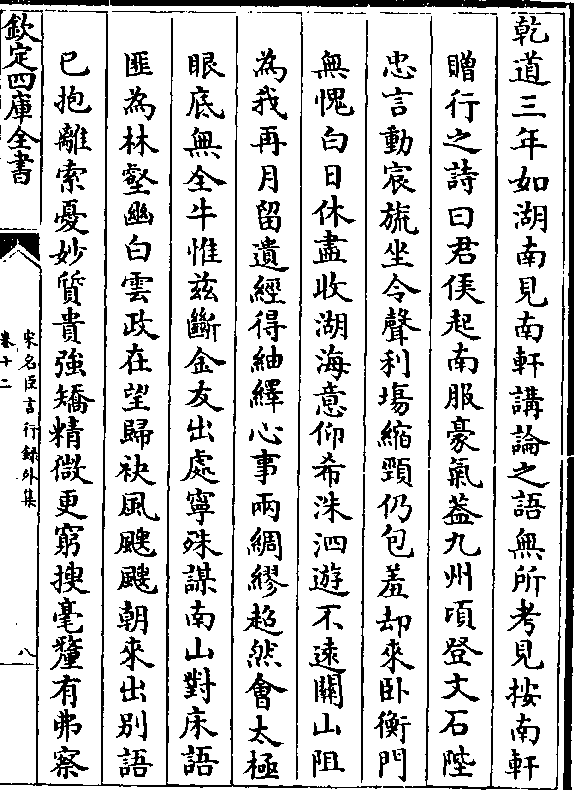 乾道三年如湖南見南軒講論之語無所考見按南軒
贈行之詩曰君侯起南服豪氣蓋九州頃登文石陛
忠言動宸旒坐令聲利塲縮頸仍包羞却來卧衡門
無愧白日休盡收湖海意仰希洙泗遊不遠關山阻
為我再月留遺經得紬繹心事兩綢繆超然會太極
眼底無全牛惟兹斷金友出處寧殊謀南山對床語
匪為林壑幽白雲政在望歸袂風颼颼朝來出别語
已抱離索憂妙質貴強矯精微更窮搜毫釐有弗察
欽定四庫全書
宋名臣言行録外集
卷十二
八